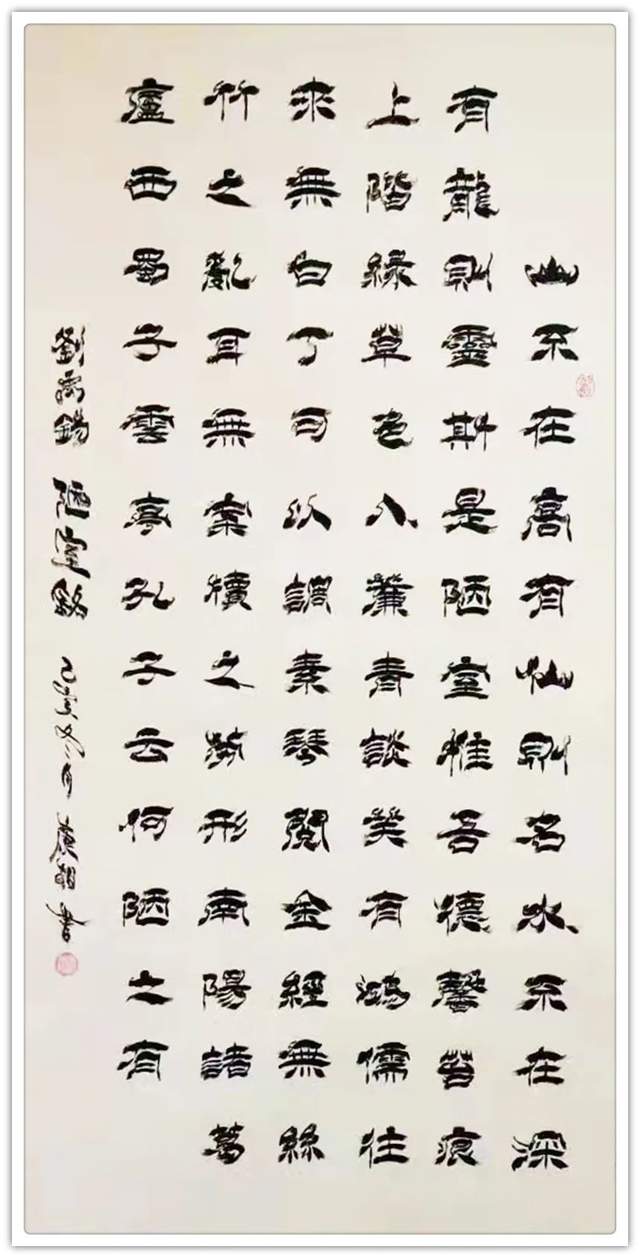 山不在高有仙則名水不在深
有龍則靈斯是陋室惟吾德馨苔痕
上階緑草色入簾青談笑有鴻儒往
來無白丁可以調素琴閱金經無絲
竹之亂耳無案牘之勞形南陽諸葛
廬西蜀子雲亭孔子云何陋之有
劉禹錫 陋室銘 己亥冬月 書